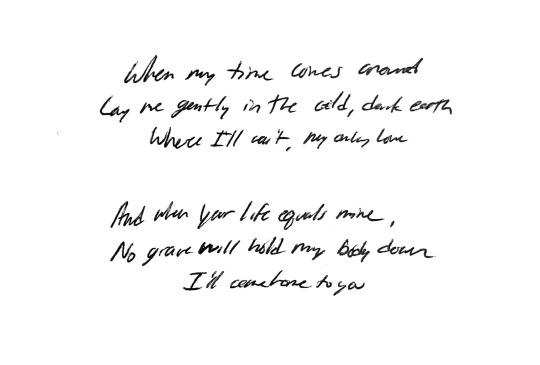 When my time comes around
Lay me gently in the cold, dark earth
Where I'll wait, my only love
And when your life equals mine,
No grave will hold my body down
I'll come home to you